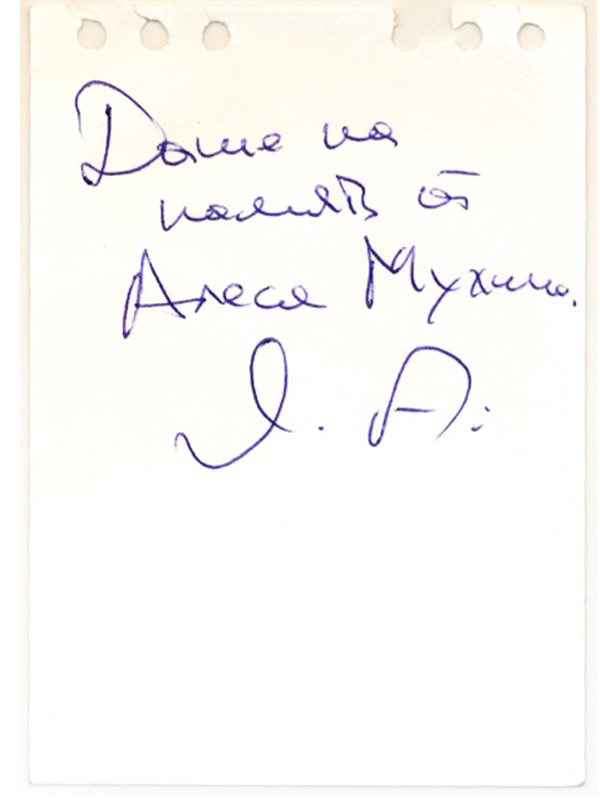 Даше на
память от
Алеся Мухина.